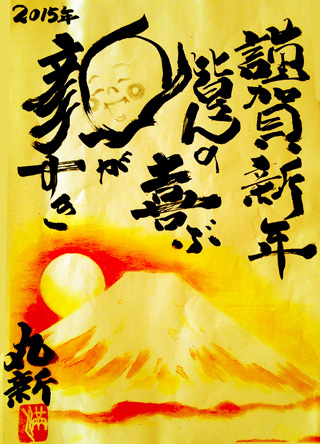 2015年
謹賀新年
皆んの
喜ぶ
顔が
すき
丸新